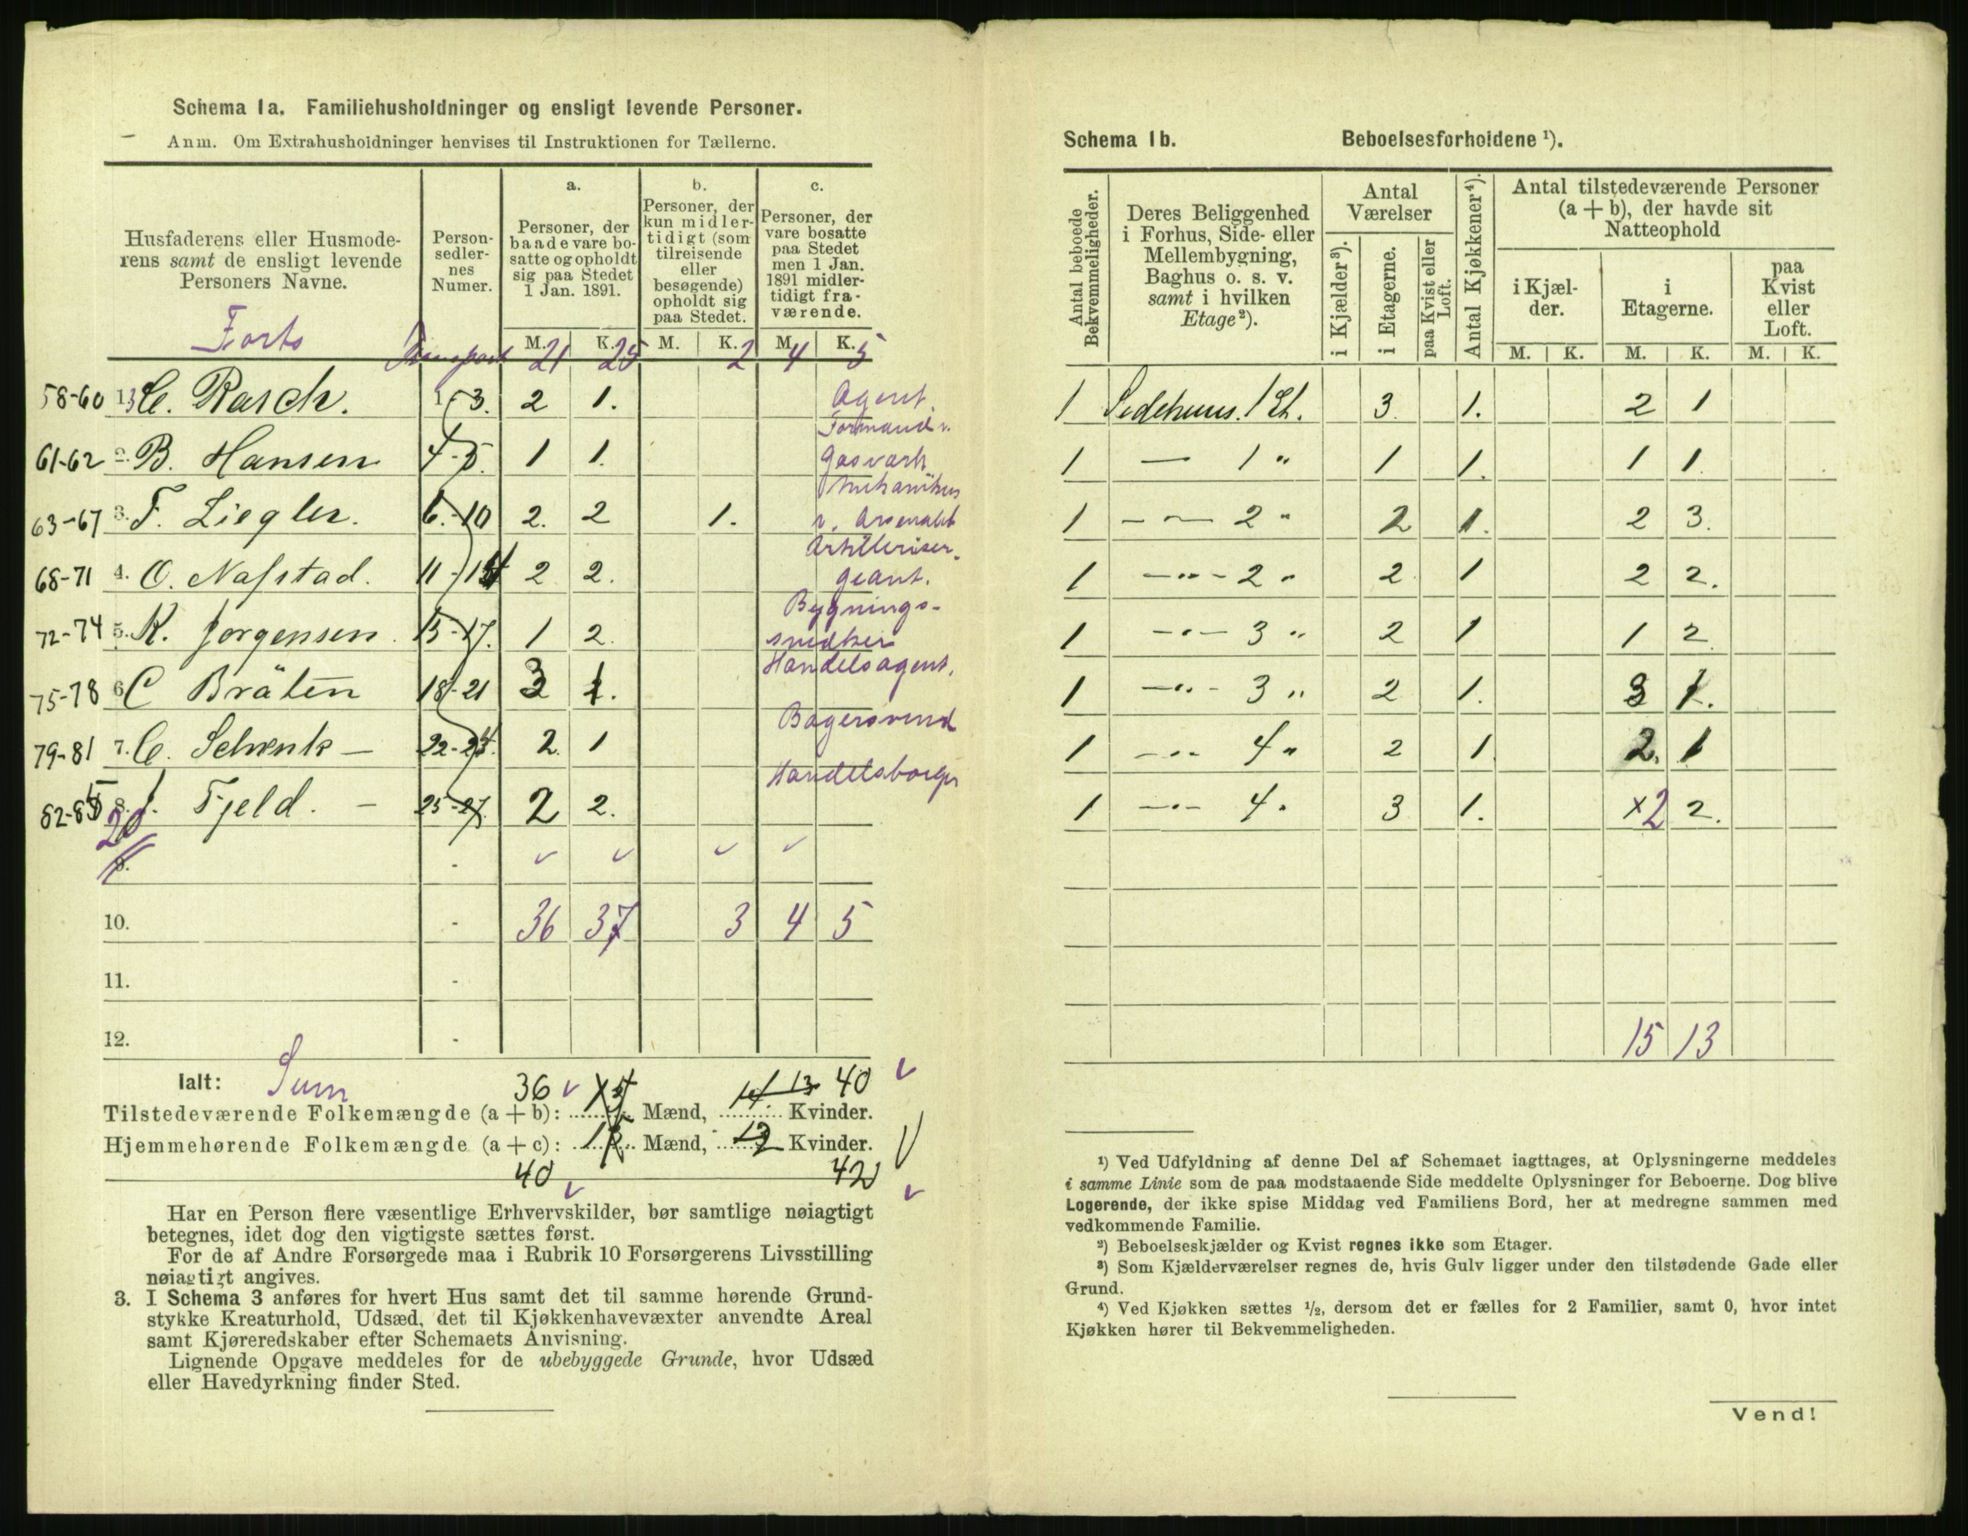 Schema 1a. Familiehusholdninger og ensligt levende Personer.
Anm. Om Extrahusholdninger henvises til Instruktionen for Tællerne.
Husfaderens eller Husmode-
rens samt de ensligt levende
Personers Navne.
Person-
sedler-
nes
Numer.
a.
Personer, der
baade vare bo-
satte og opholdt
sig paa Stedet
1 Jan. 1891.
b.
Personer, der
kun midler-
tidigt (som
tilreisende
eller
besøgende)
opholdt sig
paa Stedet.
c.
Personer, der
vare bosatte
paa Stedet
men 1 Jan.
1891 midler-
tidigt fra-
værende.
M. K. M. K. M. K.
Forts Transport 21 25 2 4 5
58-60 13 C. Rasch. 1-3. 2 1. Agent.
61-62 2. B. Hansen 4-5. 1 1. Formand v. Gasværk
63-67 3. F. Liegler. 6.-10 2. 2 1. Mekanikus v. Arsenalet
68-71 4. O. Nafstad. 11-14 2 2. Artilleriser- geant.
72-74 5. K. Jorgensen. 15-17. 1 2. Bygnings- snedker
75-78 6. C Bräten 18-21 3 1. Handelsagent.
79-81 7. C. Schenk — 22-24. 2. 1 Bagersvend
82-85 8. J. Fjeld. — 25-27. 2 2. Handelsborger
20
9. -
10. - 36 37 3 4 5
11. -
12. -
Ialt: Sum 36 13 40
Tilstedeværende Folkemængde (a + b): ...... Mænd, 14. Kvinder.
Hjemmehørende Folkemængde (a + c): ...... Mænd, 13 Kvinder.
40 42
Har en Person flere væsentlige Erhvervskilder, bør samtlige nøiagtigt
betegnes, idet dog den vigtigste sættes først.
For de af Andre Forsørgede maa i Rubrik 10 Forsørgerens Livsstilling
nøiagtigt angives.
3. I Schema 3 anføres for hvert Hus samt det til samme hørende Grund-
stykke Kreaturhold, Udsæd, det til Kjøkkenhavevæxter anvendte Areal
samt Kjøreredskaber efter Schemaets Anvisning.
Lignende Opgave meddeles for de ubebyggede Grunde, hvor Udsæd
eller Havedyrkning finder Sted.
Schema 1b. Beboelsesforholdene ¹).
Antal beboede
Bekvemmeligheder.
Deres Beliggenhed
i Forhus, Side- eller
Mellembygning,
Baghus o. s. v.
samt i hvilken
Etage²).
Antal
Værelser
i Kjælder³).
i Etagerne.
paa Kvist eller
Loft.
Antal Kjøkkener⁴).
Antal tilstedeværende Personer
(a + b), der havde sit
Natteophold
i Kjæl-
der.
i
Etagerne.
paa
Kvist
eller
Loft.
M. K. M. K. M. K.
1 Sidehuus. 1 Et. 3. 1. 2 1
1 — 1 " 1 1. 1 1.
1 - — 2 " 2 1. 2 3.
1 —"- 2 " 2 1 2 2.
1 —"- 3 " 2 1 1 2.
1 —"- 3 " 2 1. 3 1.
1 —"- 4 " 2 1. 2. 1
1 —"- 4 " 3 1. ×2 2.
15 13
¹) Ved Udfyldning af denne Del af Schemaet iagttages, at Oplysningerne meddeles
i samme Linie som de paa modstaaende Side meddelte Oplysninger for Beboerne. Dog blive
Logerende, der ikke spise Middag ved Familiens Bord, her at medregne sammen med
vedkommende Familie.
²) Beboelseskjælder og Kvist regnes ikke som Etager.
³) Som Kjælderværelser regnes de, hvis Gulv ligger under den tilstødende Gade eller
Grund.
⁴) Ved Kjøkken sættes ½, dersom det er fælles for 2 Familier, samt 0, hvor intet
Kjøkken hører til Bekvemmeligheden.
Vend!